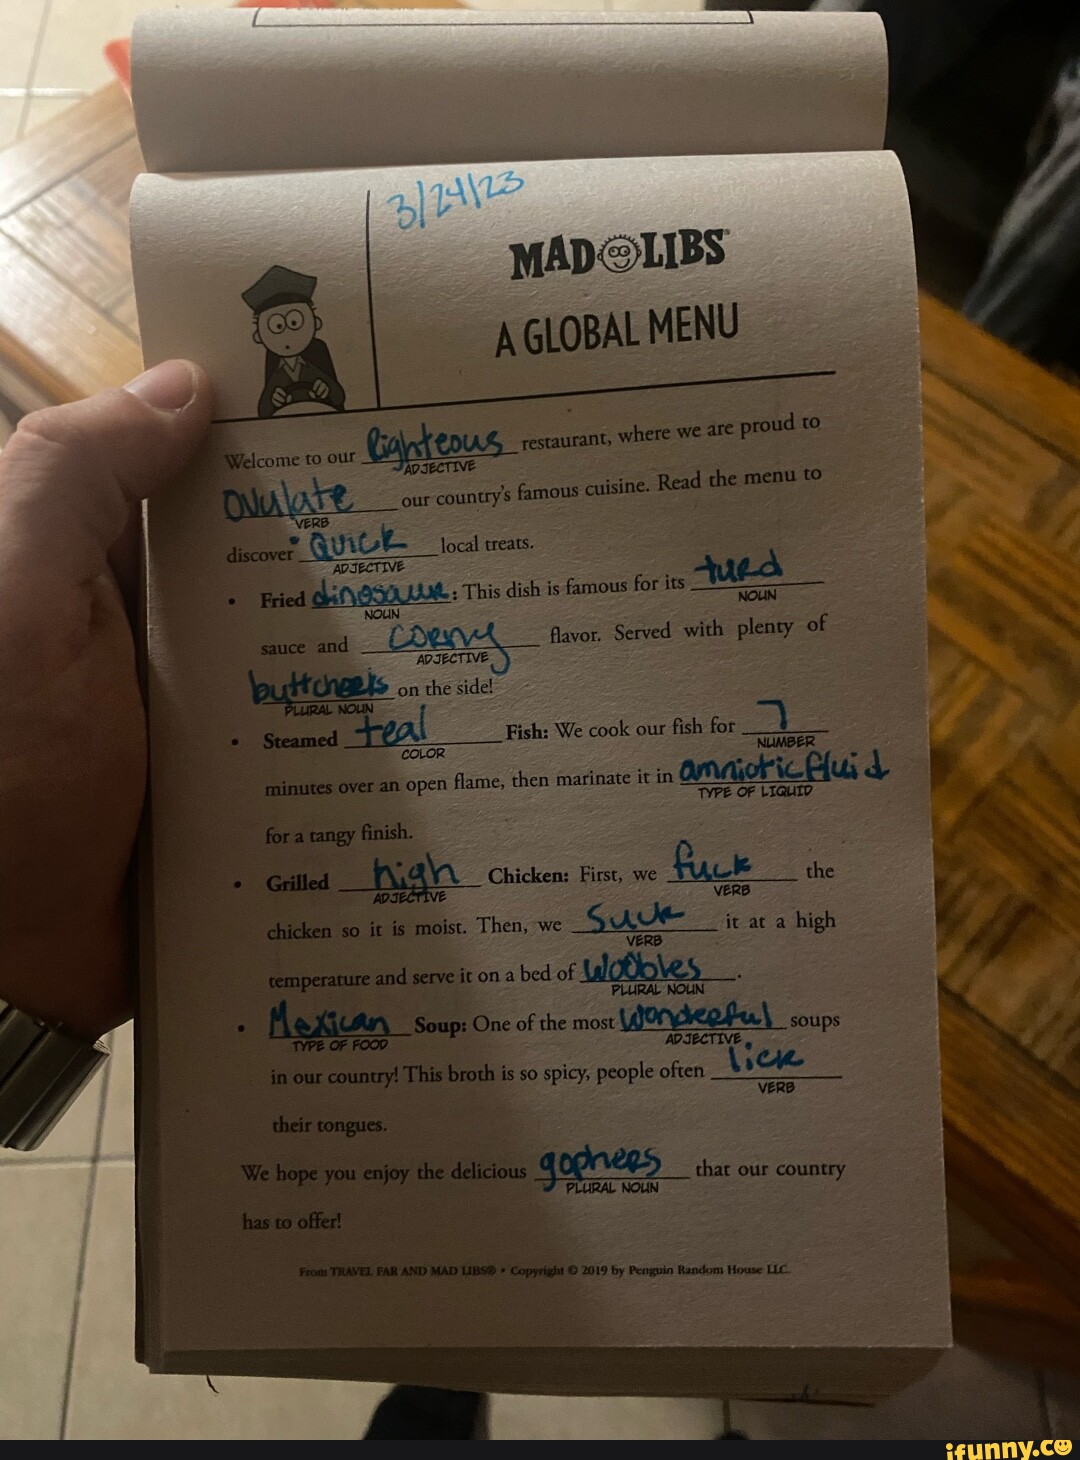 3/24/23
MAD LIBS®
A GLOBAL MENU
Welcome to our Righteous restaurant, where we are proud to
ADJECTIVE
Ovulate our country's famous cuisine. Read the menu to
VERB
discover Quick local treats.
ADJECTIVE
• Fried dinosaur: This dish is famous for its turd
NOUN NOUN
sauce and corny flavor. Served with plenty of
ADJECTIVE
buttcheeks on the side!
PLURAL NOUN
• Steamed teal Fish: We cook our fish for 7
COLOR NUMBER
minutes over an open flame, then marinate it in amniotic fluid
TYPE OF LIQUID
for a tangy finish.
• Grilled high Chicken: First, we fuck the
ADJECTIVE VERB
chicken so it is moist. Then, we Suck it at a high
VERB
temperature and serve it on a bed of Woobles.
PLURAL NOUN
• Mexican Soup: One of the most Wonderful soups
TYPE OF FOOD ADJECTIVE
in our country! This broth is so spicy, people often lick
VERB
their tongues.
We hope you enjoy the delicious gophers that our country
PLURAL NOUN
has to offer!
From TRAVEL FAR AND MAD LIBS® • Copyright © 2019 by Penguin Random House LLC.
ifunny.co